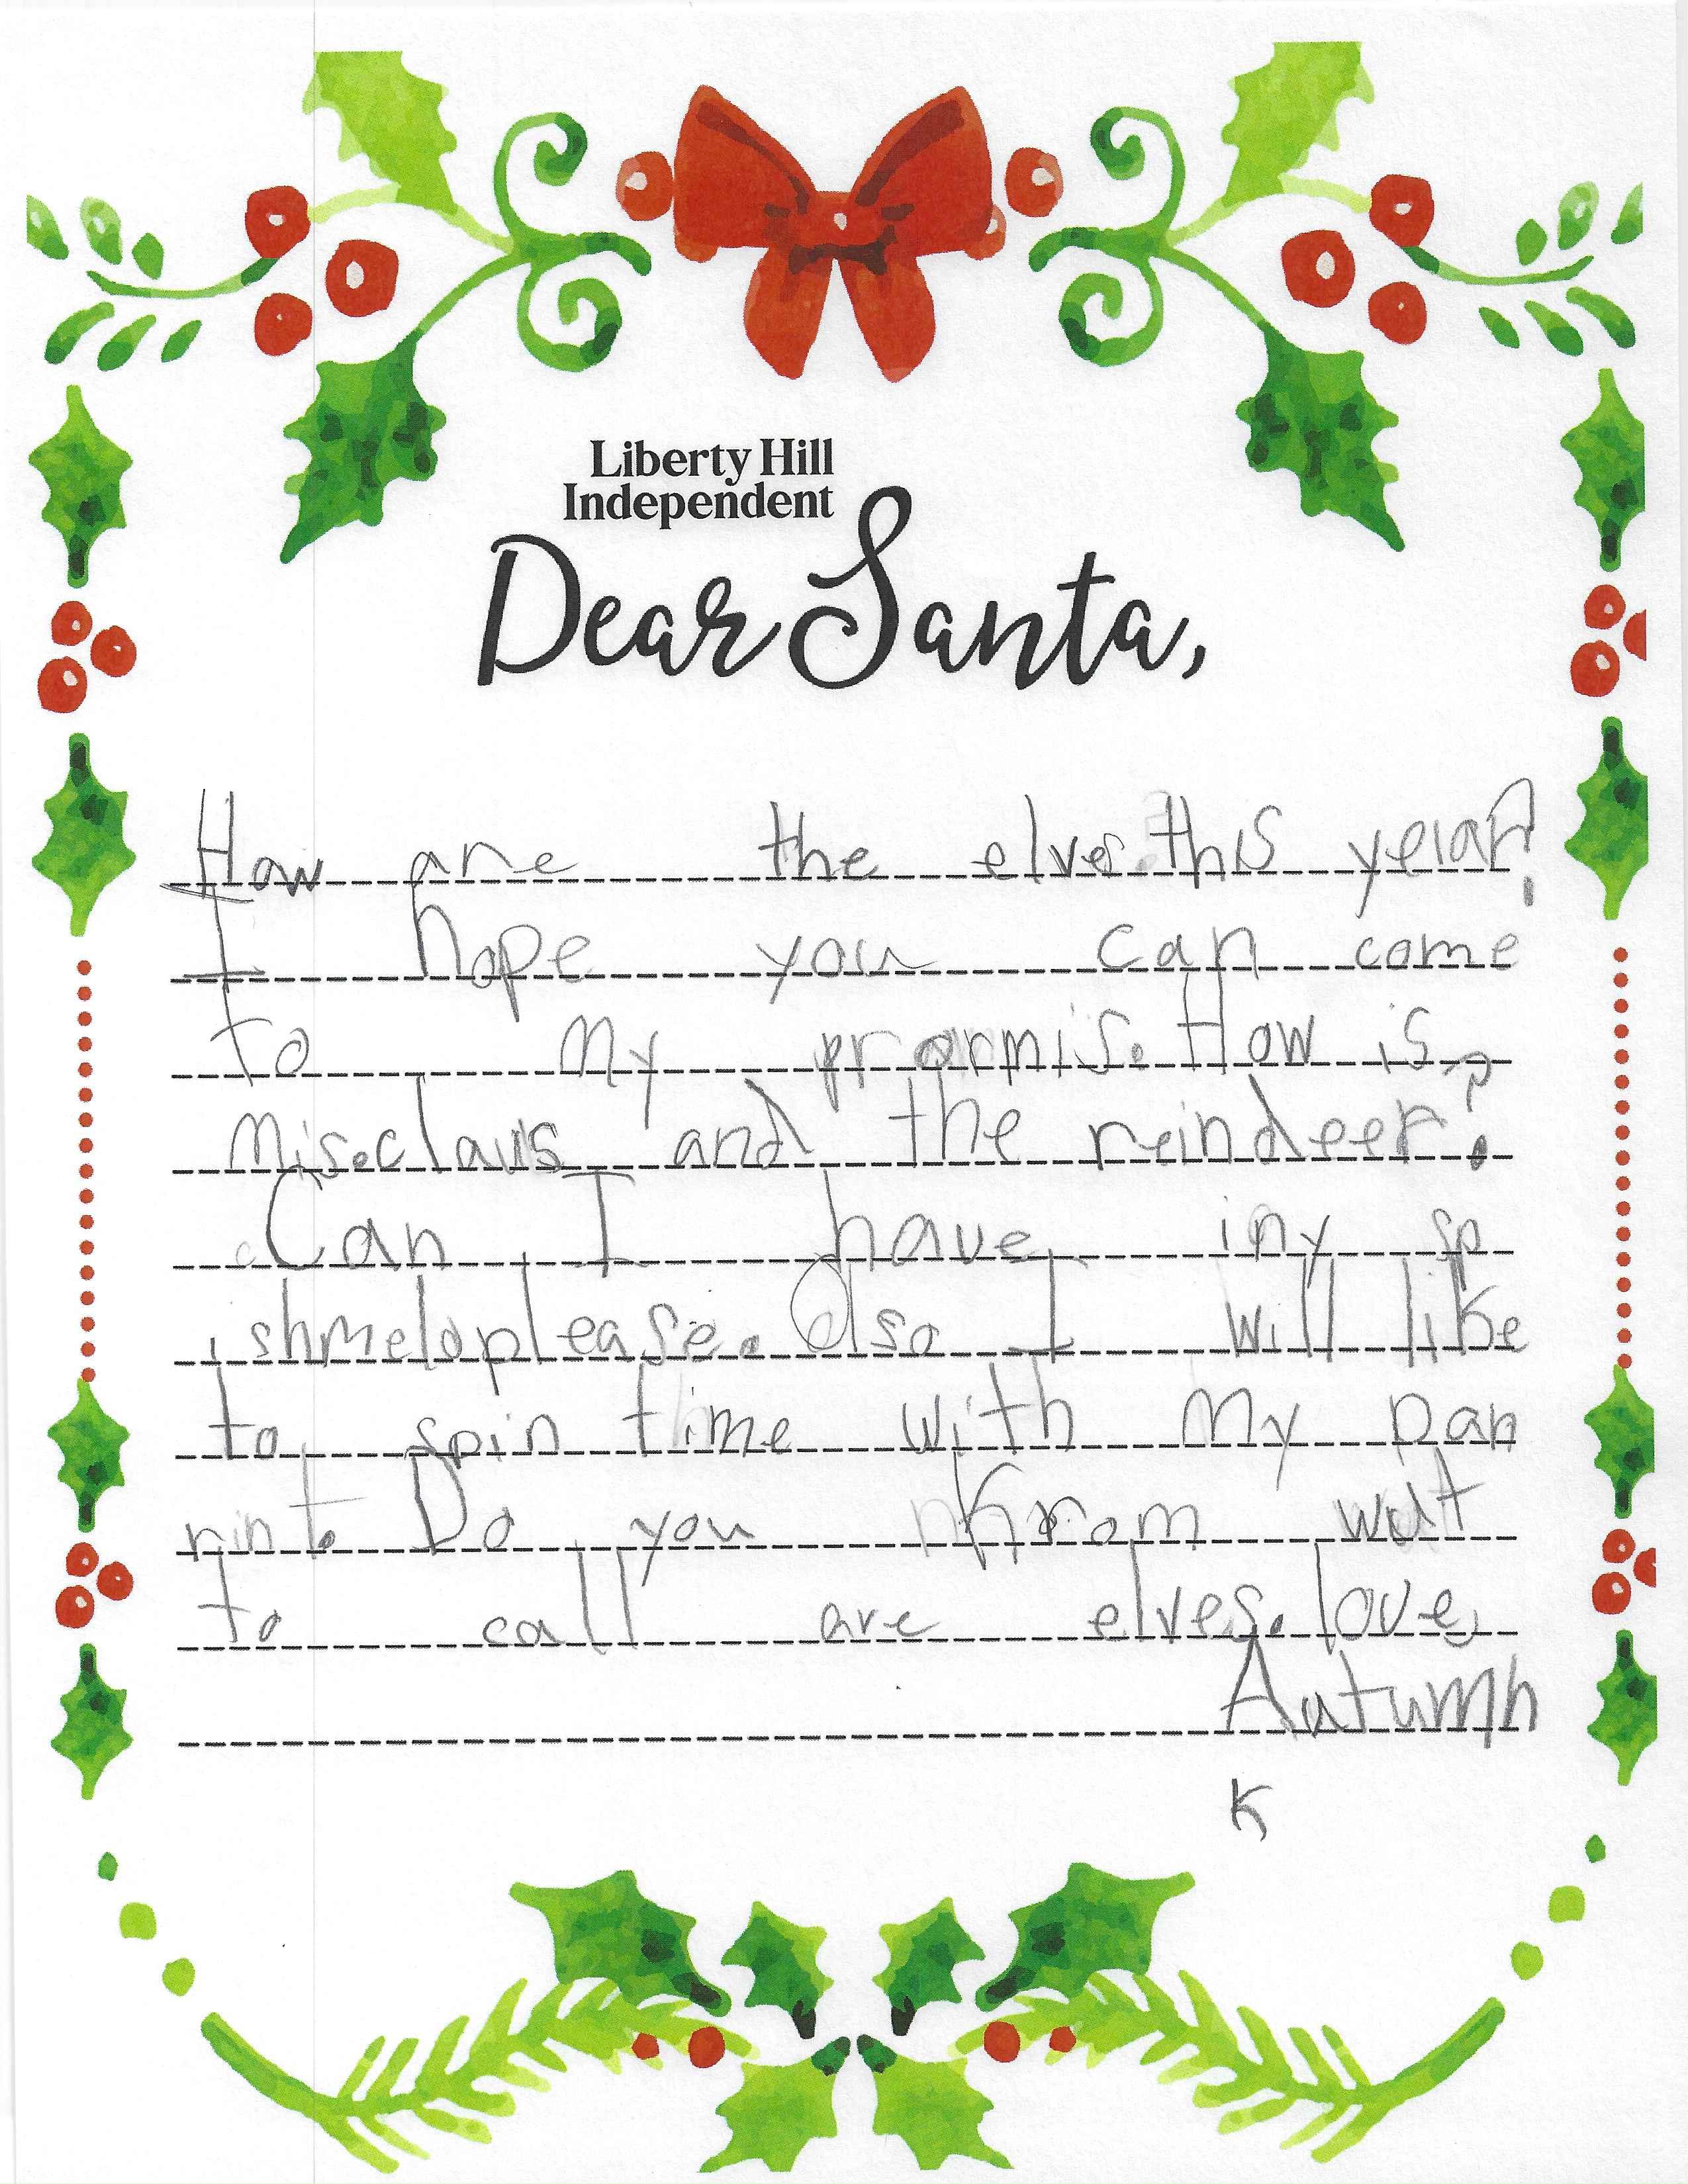 Liberty Hill
Independent
Dear Santa,
How are the elves this year?
I hope you can come
to my promis. How is
Mis.claus and the reindeer?
Can I have iny sp
ishmelo please. Also I will like
to spin time with My pan
rint. Do you Krom wut
to call are elves. love,
Autumn
K